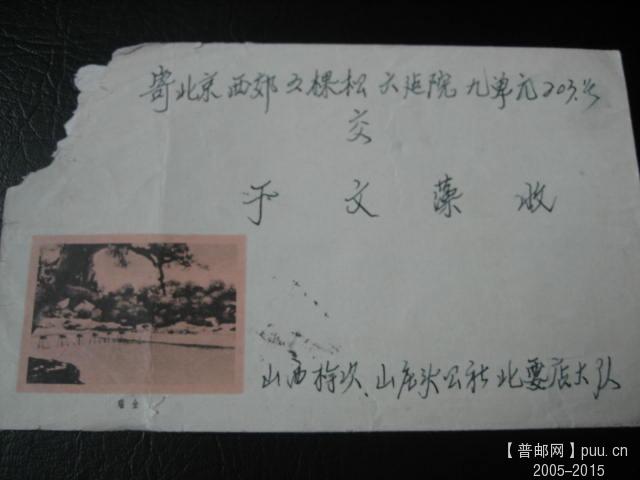 寄北京西郊五棵松六延院九单元203号
交
于文藻收
山西榆次、山庄头公社北要店大队
【普邮网】puu.cn
2005-2015